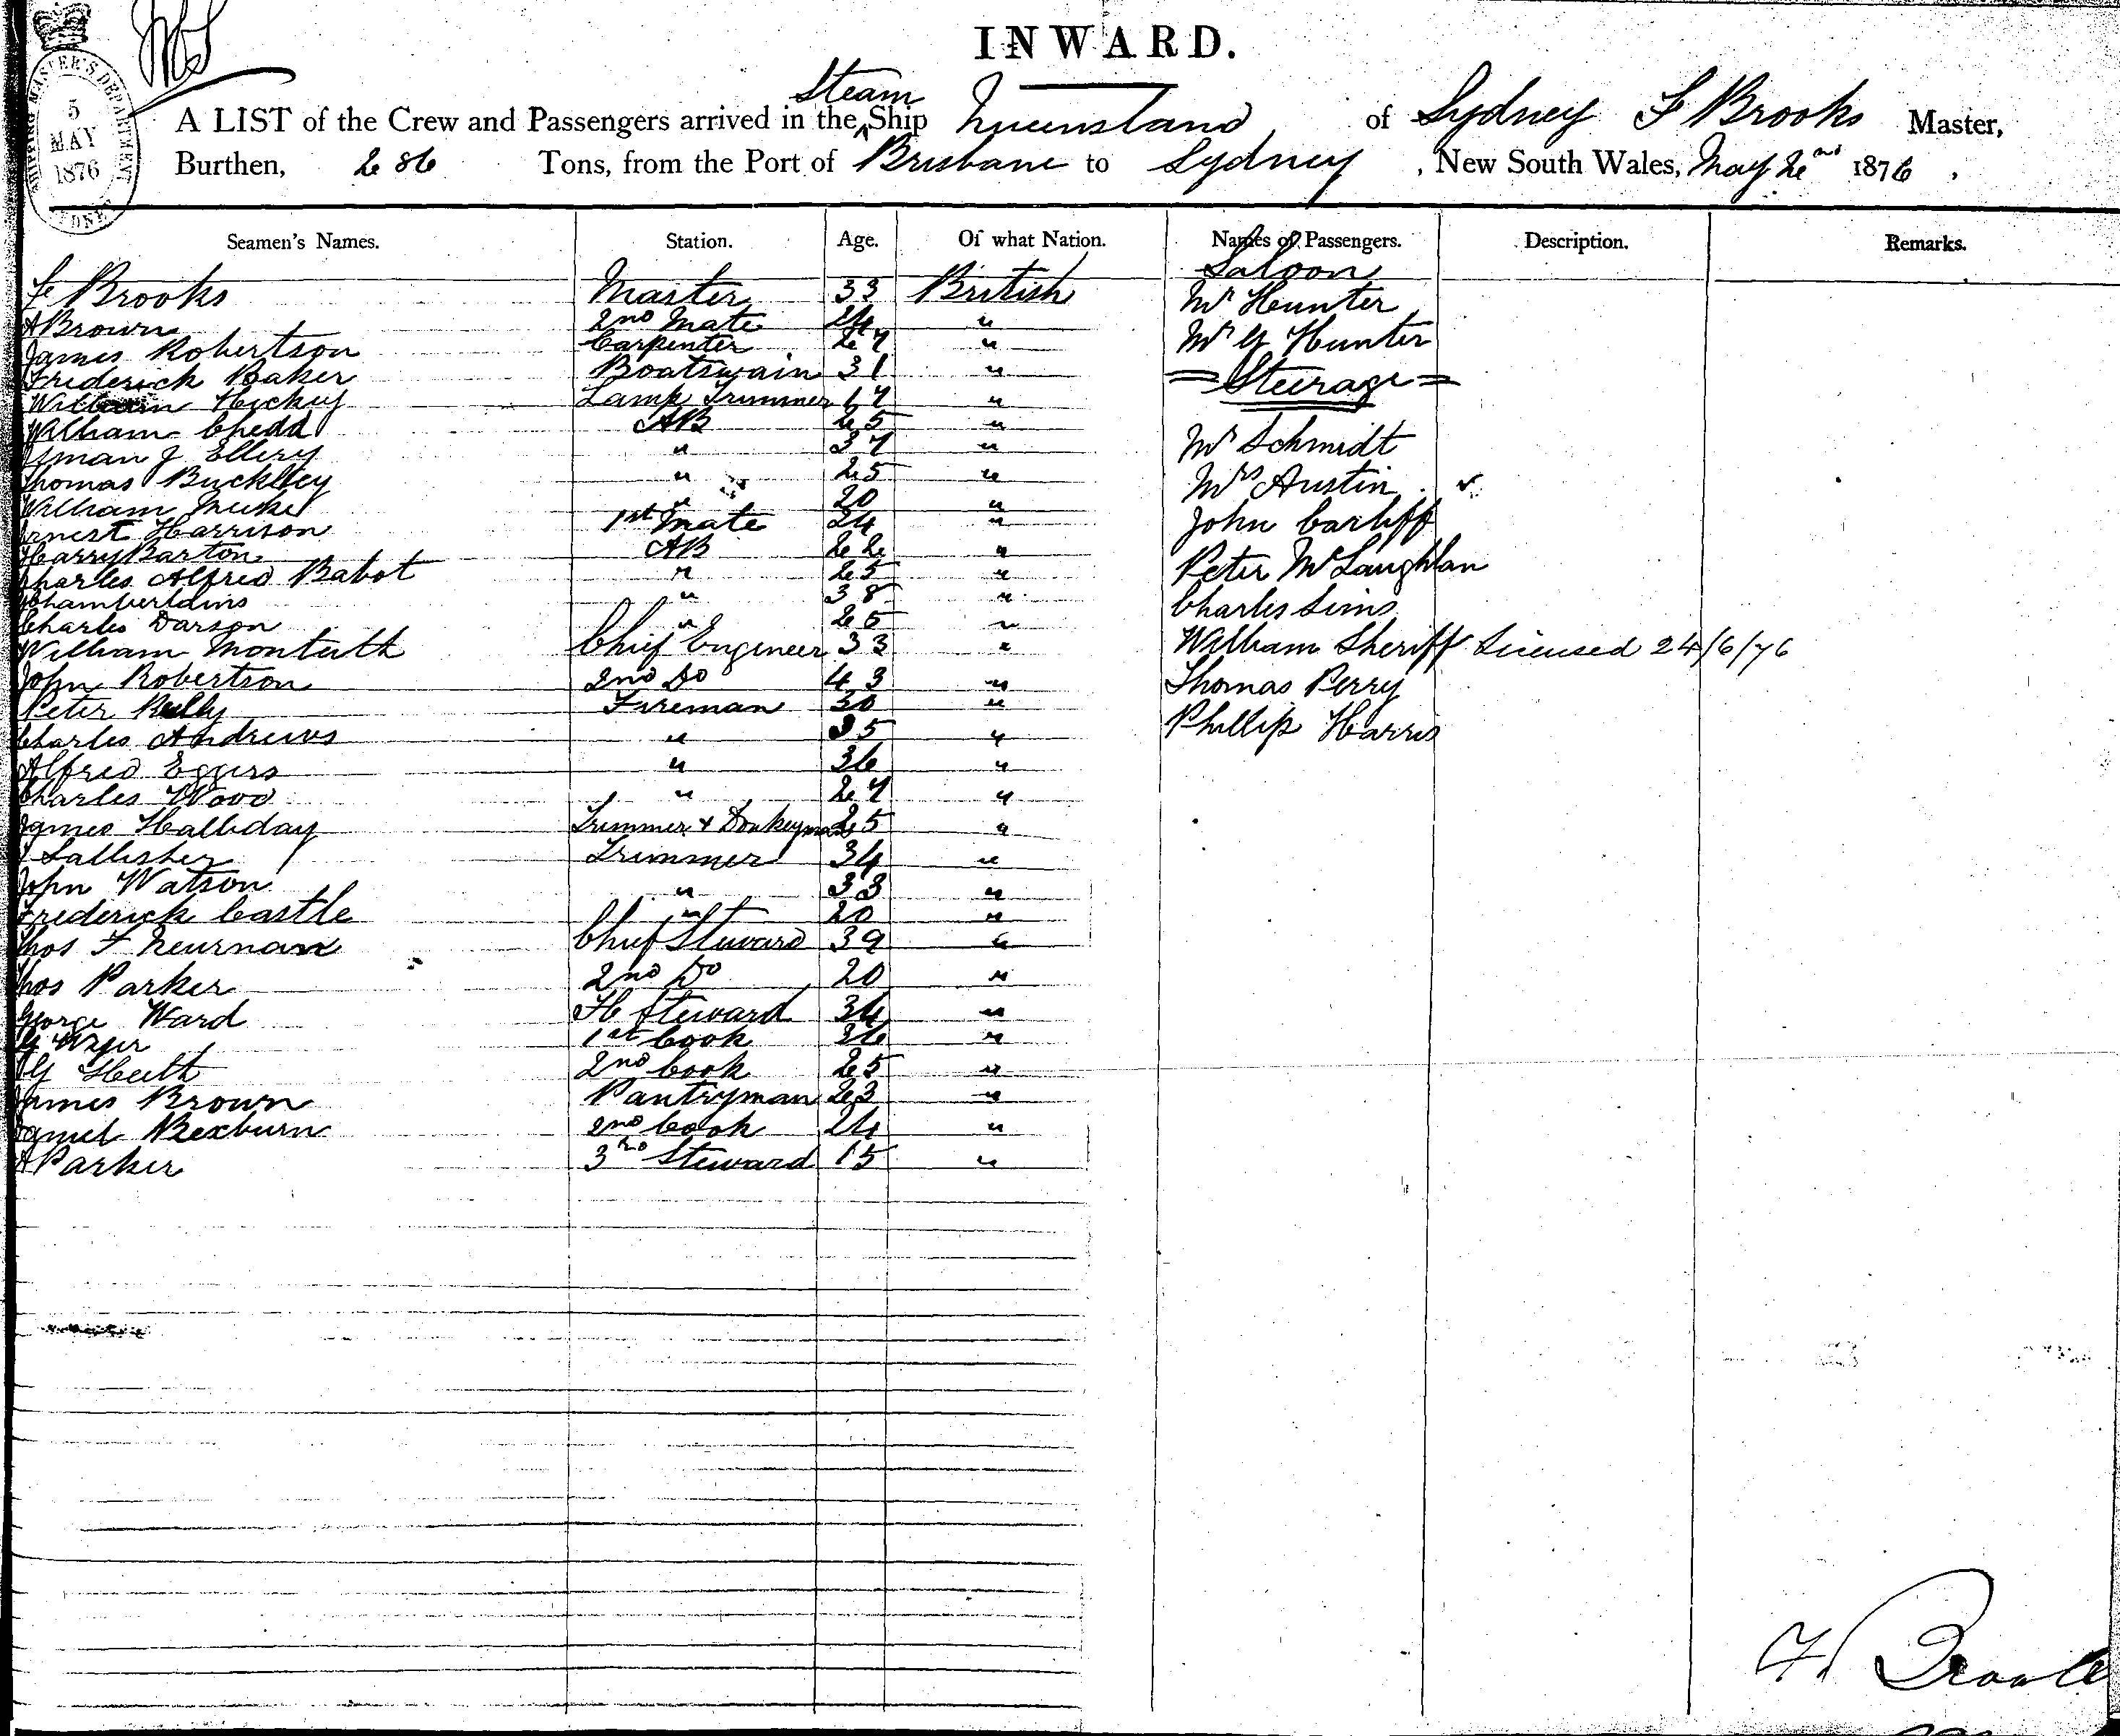 INWARD.
5 MAY 1876
Steam
A LIST of the Crew and Passengers arrived in the Ship Queensland of Sydney F Brooks Master,
Burthen, 286 Tons, from the Port of Brisbane to Sydney, New South Wales, May 2nd 1876,
Seamen's Names. Station. Age. Of what Nation. Names of Passengers. Description. Remarks.
Saloon
F Brooks Master 33 British Mr Hunter
A Brown 2nd Mate 24 " Mr G Hunter
James Robertson Carpenter 27 "
Frederick Baker Boatswain 31 " Steerage
William Hickey Lamp Trimmer 17 "
William AB 25 "
J Ellery " 37 " Mr Schmidt
Thomas Buckley " 25 " Mrs Austin
William " 20 "
Ernest Harrison 1st Mate 24 " John
Harry Barton AB 22 "
Charles Alfred Babot " 25 " Peter McLaughlan
Chamberlains " 38 " Charles Sims
Charles Darson " 25 "
William Monteith Chief Engineer 33 " William Sheriff Licensed 24/6/76
John Robertson 2nd Do 43 " Thomas Perry
Peter Kelly Fireman 30 "
Charles Andrews " 35 " Phillip Harris
Alfred Eggers " 36 "
Charles Wood " 27 "
James Halliday Trimmer & Donkeyman 25 "
Trimmer 34 "
John Watson " 33 "
Frederick Castle " 20 "
Thos F Chief Steward 39 "
Thos Parker 2nd Do 20 "
George Ward Steward
1st Cook "
2nd Cook 25 "
James Brown Pantryman 23 "
Bexburn 2nd Cook 24 "
A Parker 3rd Steward 15 "
F Brooks